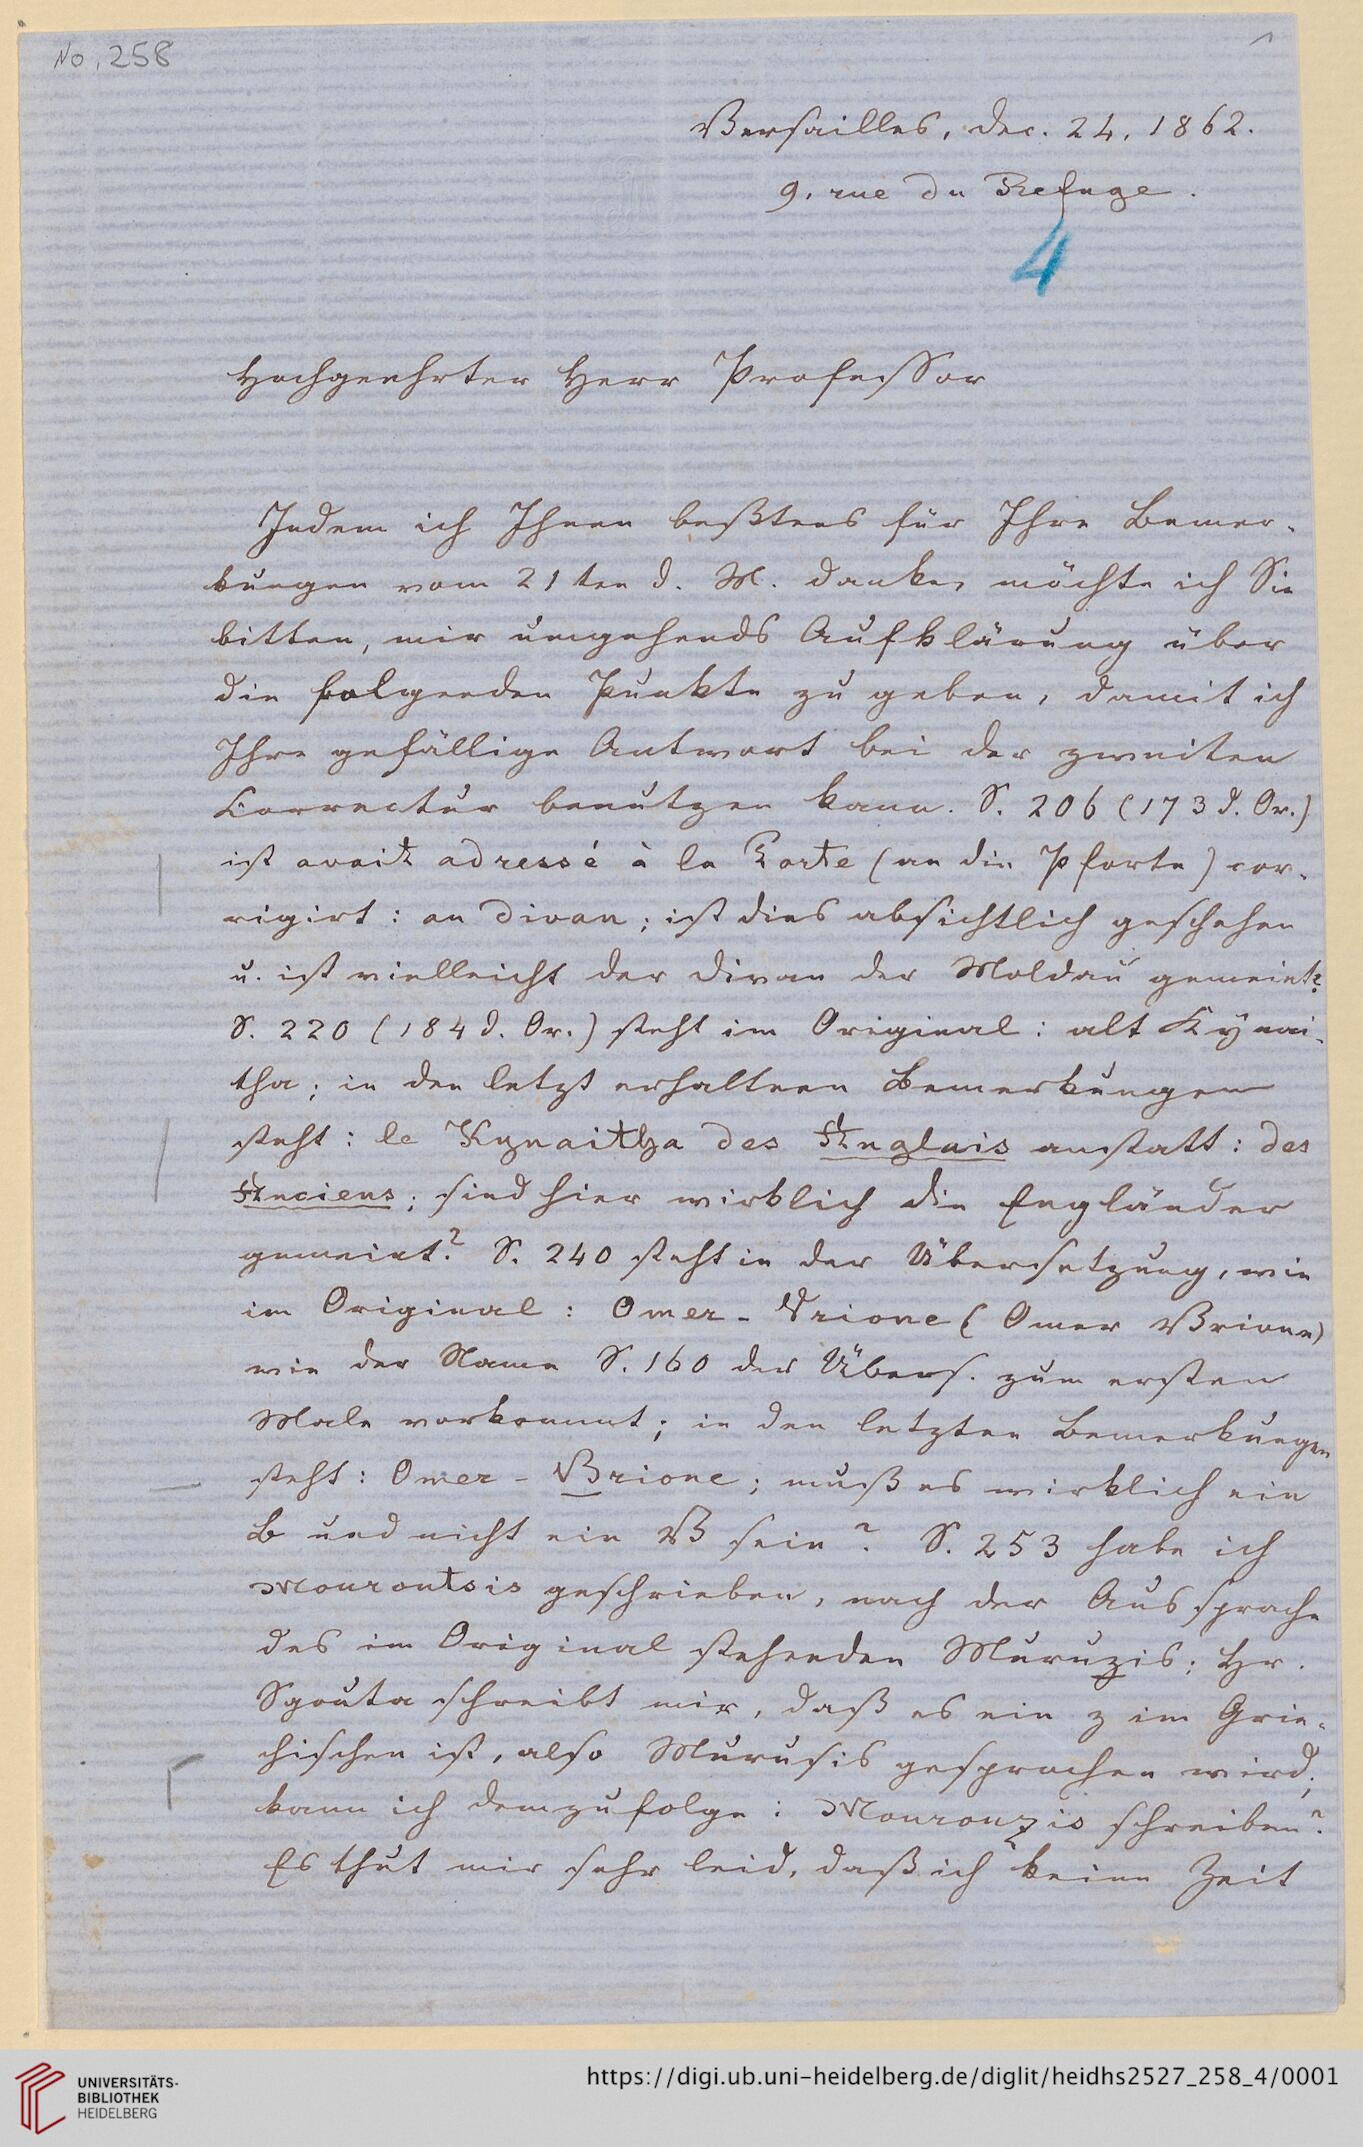 No. 258
1
Versailles, dec. 24. 1862.
9. rue du Refuge.
4
Hochgeehrter Herr Professor
Indem ich Ihnen beßtens für Ihre Bemer-
kungen vom 21ten d. M. danke, möchte ich Sie
bitten, mir umgehends Aufklärung über
die folgenden Punkte zu geben, damit ich
Ihre gefällige Antwort bei der zweiten
Correctur benutzen kann. S. 206 (173 d. Or.)
ist avait adressé à la Porte (an die Pforte) cor-
rigirt: au divan; ist dies absichtlich geschehen
u. ist vielleicht der Divan der Moldau gemeint?
S. 220 (184 d. Or.) steht im Original: alt Kynai-
tha; in den letzt erhaltnen Bemerkungen
steht: le Kynaitha des Anglais anstatt: des
Anciens; sind hier wirklich die Engländer
gemeint? S. 240 steht in der Übersetzung, wie
im Original: Omer-Vrione (Omer Vrione)
wie der Name S. 160 der Übers. zum ersten
Male vorkommt; in den letzten Bemerkungen
steht: Omer-Brione; muß es wirklich ein
B und nicht ein V sein? S. 253 habe ich
Mouroutsis geschrieben, nach der Aussprache
des im Original stehenden Muruzis; Hr.
Sgouta schreibt mir, daß es ein z im Grie-
chischen ist, also Murusis gesprochen wird;
kann ich demzufolge: Mourouzis schreiben?
Es thut mir sehr leid, daß ich keine Zeit
UNIVERSITÄTS-
BIBLIOTHEK
HEIDELBERG
https://digi.ub.uni-heidelberg.de/diglit/heidhs2527_258_4/0001